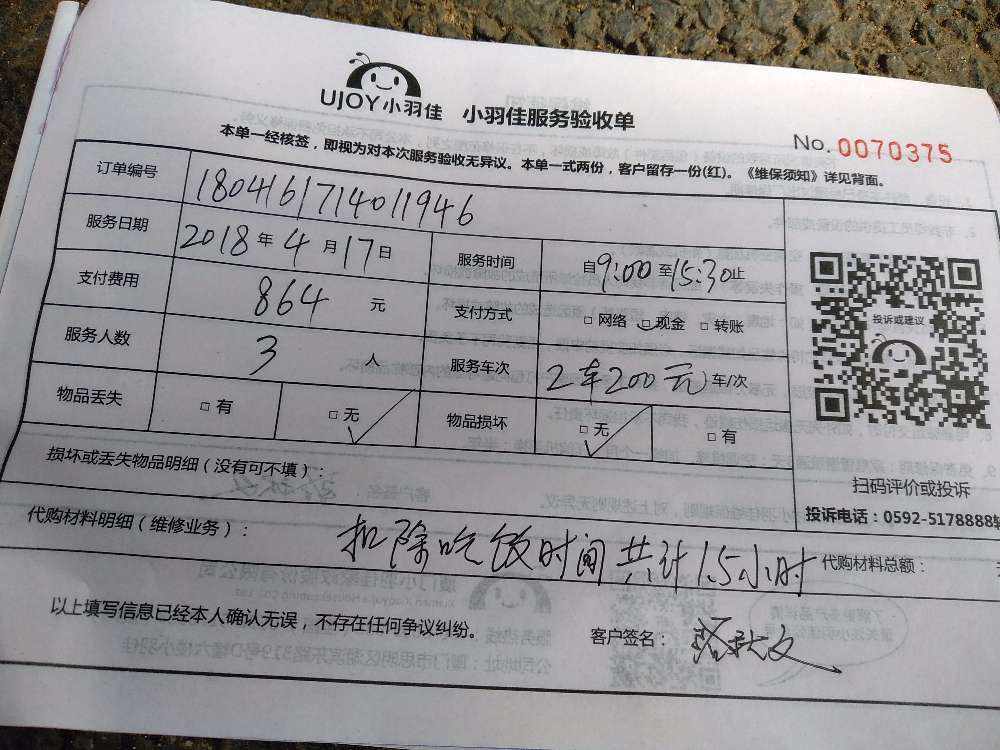 UJOY小羽佳 小羽佳服务验收单
No. 0070375
本单一经核签，即视为对本次服务验收无异议。本单一式两份，客户留存一份(红)。《维保须知》详见背面。
订单编号 1804161714011946
服务日期 2018年4月17日 服务时间 自9:00至15:30止
支付费用 864元 支付方式 □网络 □现金 □转账
服务人数 3人 服务车次 2车200元车/次
物品丢失 □有 □无 物品损坏 □无 □有
投诉或建议
损坏或丢失物品明细（没有可不填）：
扫码评价或投诉
投诉电话：0592-5178888转
代购材料明细（维修业务）： 扣除吃饭时间共计1.5小时 代购材料总额：
以上填写信息已经本人确认无误，不存在任何争议纠纷。 客户签名：